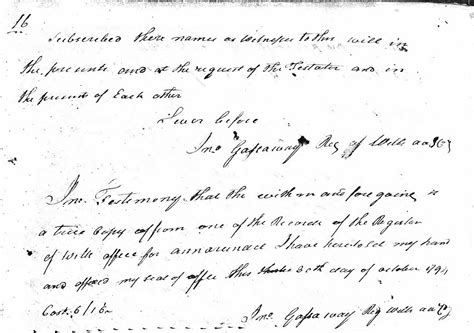 16
Subscribed there names as Witnesses to this will in
the presents and at the request of the Testator and in
the presents of Each other
Sworn before
Jno Gassaway Reg of Wills aa
In Testimony that the within and fore going is
a true Copy from one of the Records of the Register
of Wills office for annarundel I have hereto set my hand
and affixed my seal of office this 30th day of october 1794
Cost. 6/
Jno Gassaway Reg Wills aa